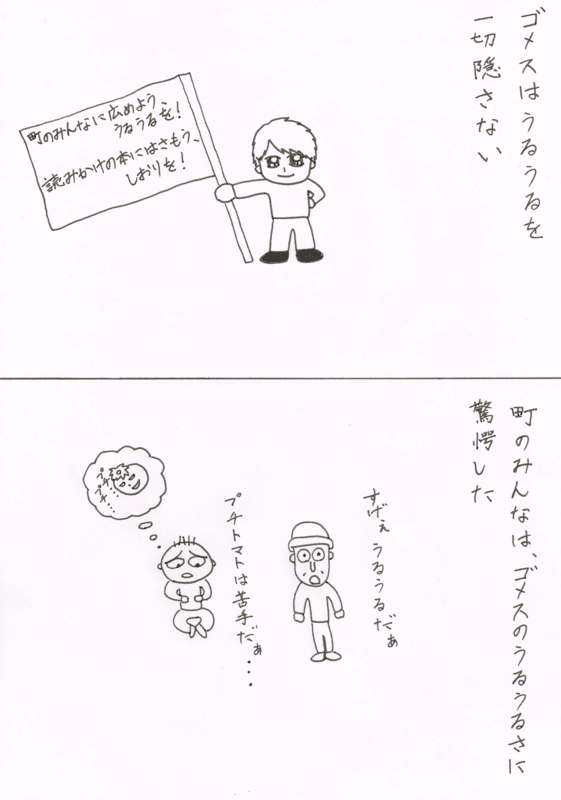 ゴメスはうるうるを
一切隠さない
町のみんなに広めよう
うるうるを!
読みかけの本にはさもう、
しおりを!
町のみんなは、ゴメスのうるうるさに
驚愕した
すげぇ うるうるだぁ
プチトマトは苦手だぁ・・・